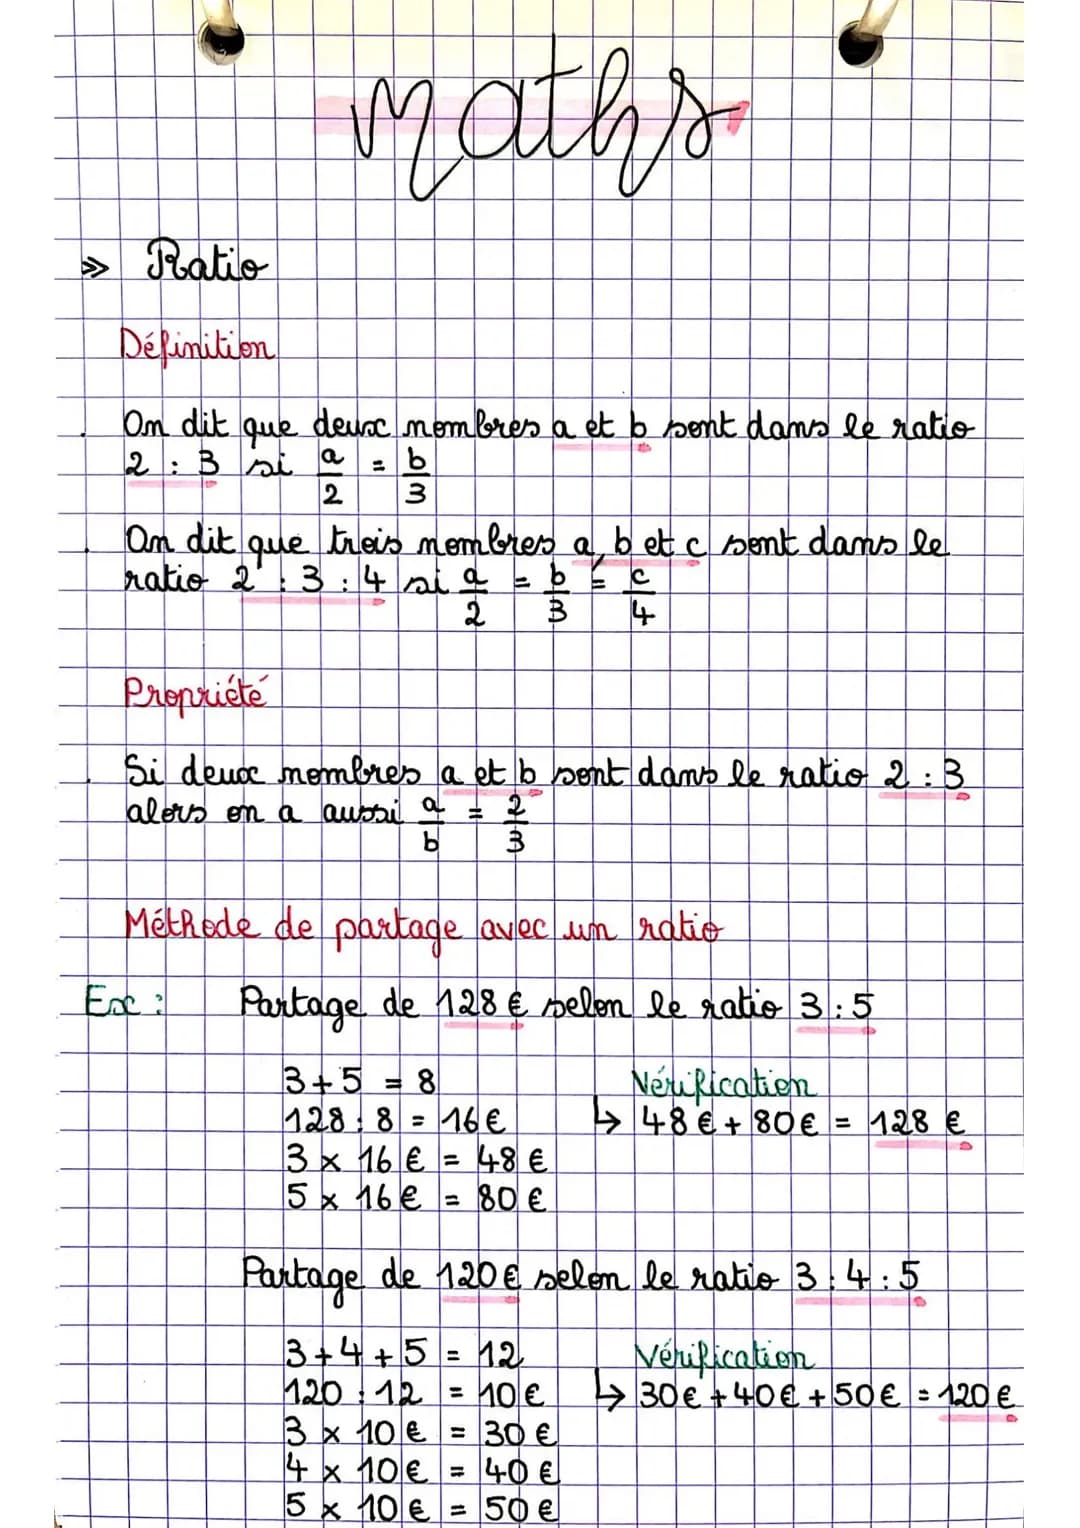 maths
» Ratio
Définition
. On dit que deux nombres a et b sont dans le ratio
2 : 3 si a/2 = b/3
. On dit que trois nombres a, b et c sont dans le
ratio 2 : 3 : 4 si a/2 = b/3 = c/4
Propriété
. Si deux nombres a et b sont dans le ratio 2 : 3
alors on a aussi a/b = 2/3
Méthode de partage avec un ratio
Ex : Partage de 128 € selon le ratio 3 : 5
3 + 5 = 8
Vérification
128 : 8 = 16 €
↳ 48 € + 80 € = 128 €
3 x 16 € = 48 €
5 x 16 € = 80 €
Partage de 120 € selon le ratio 3 : 4 : 5
3 + 4 + 5 = 12
Vérification
120 : 12 = 10 €
↳ 30 € + 40 € + 50 € = 120 €
3 x 10 € = 30 €
4 x 10 € = 40 €
5 x 10 € = 50 €